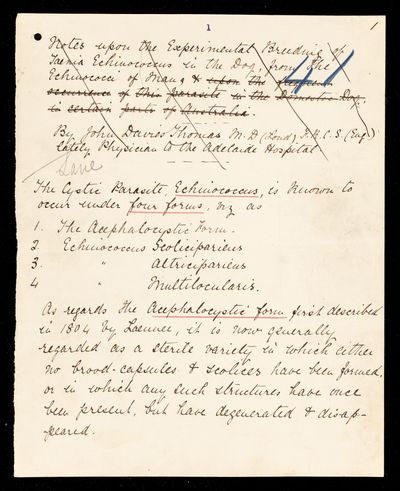 1
1
Notes upon the Experimental Breeding of
Taenia Echinococcus in the Dog, from the
Echinococci of Man, & upon the
occurrence of this parasite in the Domestic Dog,
in certain parts of Australia.
41
By John Davies Thomas M.D (Lond) F.R.C.S. (Eng)
lately Physician to the Adelaide Hospital
The Cystic Parasite, Echinococcus, is known to
occur under four forms, viz as
1. The Acephalocystic Form.
2. Echinococcus Scolicipariens
3. " Altricipariens
4 " Multilocularis.
As regards the Acephalocystic form first described
in 1804 by Laennec, it is now generally
regarded as a sterile variety in which either
no brood-capsules & scolices have been formed,
or in which any such structures have once
been present, but have degenerated & disap-
peared.